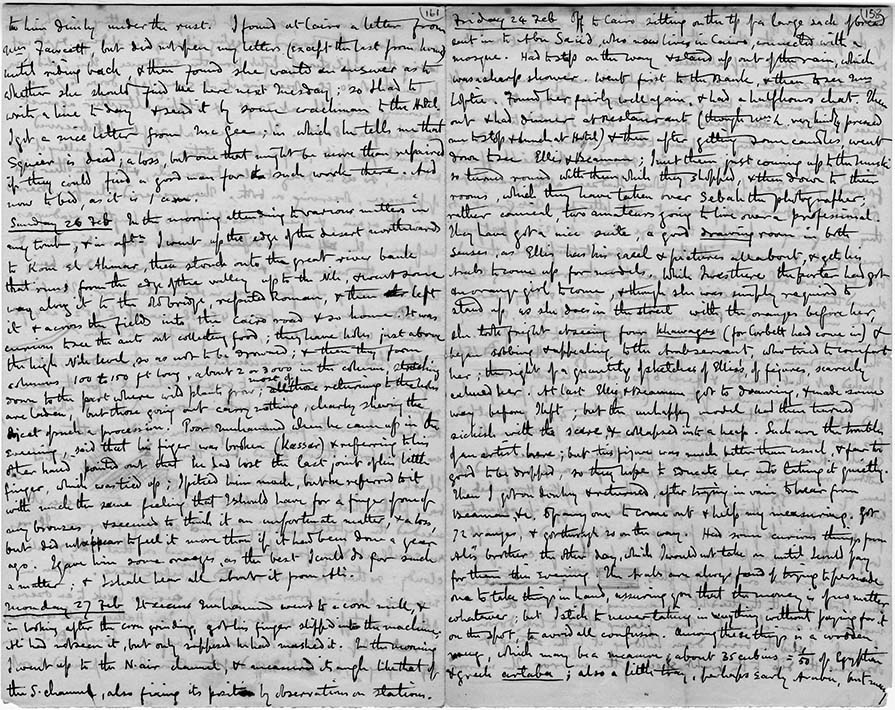 161
to him dimly under the rust. I found at Cairo a letter from
Miss Fawcett, but did not open my letters (except the last from home)
until riding back, & then found she wanted an answer as to
whether she should find me here next Tuesday; so I had to
write a line to day & send it by some coachman to the Hotel.
I got a nice letter from McGee; in which he tells me that
Squeer is dead; a loss, but one that might be more than repaired
if they could find a good man for such work there. And
now to bed, as it is 1 a.m.
Sunday 26 Feb In the morning attending to various matters in
my tomb, & in aft. I went up the edge of the desert northwards
to Kom el Ahmar, then struck onto the great river bank
that runs from the edge of the valley up to the Nile, & went some
way along it to the old bridge, reputed Roman, & then left
it & across the fields into the Cairo road & so home. It was
curious to see the ants out collecting food; they have holes just above
the high Nile level, so as not to be drowned; & then they form
columns 100 to 150 ft long, about 2 or 3000 in the column, stretching
down to the part where wild plants grow; most of those returning to the holes
are laden, but those going out carry nothing, clearly shewing the
object of such a procession. Poor Muhammed when he came up in the
evening, said that his finger was broken (Kessar) & referring to his
other hand pointed out that he had lost the last joint of his little
finger, which was tied up; I pitied him much, but he referred to it
with much the same feeling that I should have for a finger of one of
my bronzes, & seemed to think it an unfortunate matter, & a loss,
but did not appear to feel it more than if it had been done a year
ago. I gave him some oranges, as the best I could do for such
a matter; & I shall hear all about it from Ali.
Monday 27 Feb It seems Muhammed went to a corn mill, &
in looking after the corn grinding, got his finger slipped into the machine.
Ali had not seen it, but only supposed he had mashed it. In the morning
I went up to the N. air channel, & measured its angle like that of
the S. channel, also fixing its position by observations on stations.
153
Friday 24 Feb Off to Cairo sitting on the tip of a large sack of bread
sent in to Abu Saiid, who now lives in Cairo, connected with a
mosque. Had to stop on the way & stand up out of the rain, which
was a sharp shower. Went first to the Bank, & then to see Mrs
Loftie. Found her fairly well again, & had a half hours chat. Then
out & had dinner at restaurant (though Mrs L. very kindly pressed
me to stop & lunch at Hotel) & then after getting some candles, went
down to see Ellis & Beaman; I met them just coming up to the Muski
so turned round with them while they shopped, & then down to their
rooms, which they have taken over Sebah the photographer;
rather comical, two amateurs going to live over a professional.
They have got a nice suite, a good drawing room in both
senses, as Ellis has his easel & pictures all about, & gets his
subs to come up for models. While I was there the porter had got
an orange girl to come, & though she was simply required to
stand up as she does in the street with the oranges before her,
she took fright at seeing four khawagas (for Corbett had come in) &
began sobbing & appealing to the Arab servant, who tried to comfort
her; the sight of a quantity of sketches of Ellis's, of figures, scarcely
calmed her. At last Ellis & Beaman got to drawing, & made some
way before I left; but the unhappy model had then turned
sickish with the scare & collapsed into a heap. Such are the troubles
of an artist here; but this figure was much better than usual, & far too
good to be dropped so they hope to educate her into taking it quietly.
Then I got on donkey & returned, after trying in vain to hear from
Beaman, &c. of any one to come out & help my measuring. Got
72 oranges & got through so on the way. Had some curious things from
Ali's brother the other day, which I would not take in until I could pay
for them this evening. The Arabs are always fond of trying to persuade
one to take things in hand, assuring you that the money is of no matter
whatever; but I stick to never taking in anything without paying for it
on the spot, to avoid all confusion. Among these things is a wooden
mug, which may be a measure, about 35 cubins = 1/50 of Egyptian
& greek artaba; also a little tray, perhaps early Arabic, but may